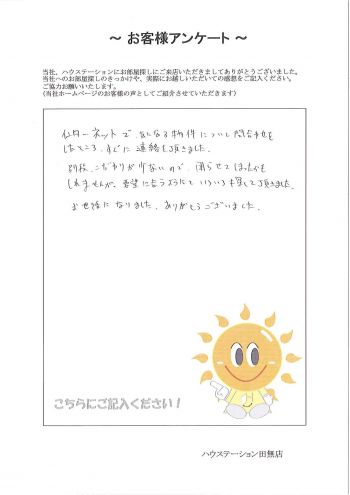 ～ お客様アンケート ～
当社、ハウステーションにお部屋探しにご来店いただきましてありがとうございました。
当社へのお部屋探しのきっかけや、実際にお越しいただいての感想をご記入ください。
ご協力お願いいたします。
(当社ホームページのお客様の声としてご紹介させていただきます)
インターネットで、気になる物件について問合せを
したところ、すぐに連絡を頂きました。
別段、こだわりが少ないので、困らせてしまったかも
しれませんが、希望に合うようにといろいろ探して頂きました。
お世話になりました。ありがとうございました。
こちらにご記入ください！
ハウステーション田無店